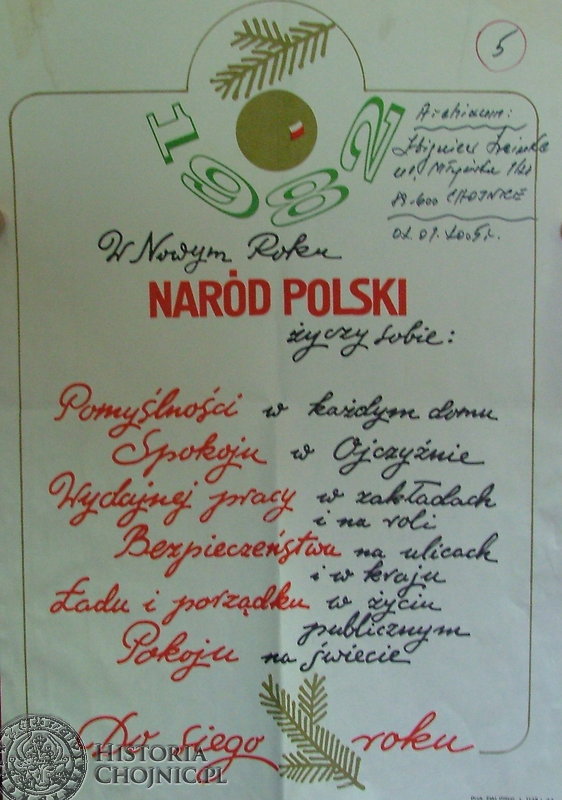 5
1982
Archiwum:
Zbigniew
ul. Młyńska
89-600 CHOJNICE
W Nowym Roku
NARÓD POLSKI
życzy sobie:
Pomyślności w każdym domu
Spokoju w Ojczyźnie
Wydajnej pracy w zakładach
i na roli
Bezpieczeństwa na ulicach
i w kraju
Ładu i porządku w życiu
publicznym
Pokoju na świecie
Do siego roku
HISTORIA
CHOJNIC.PL